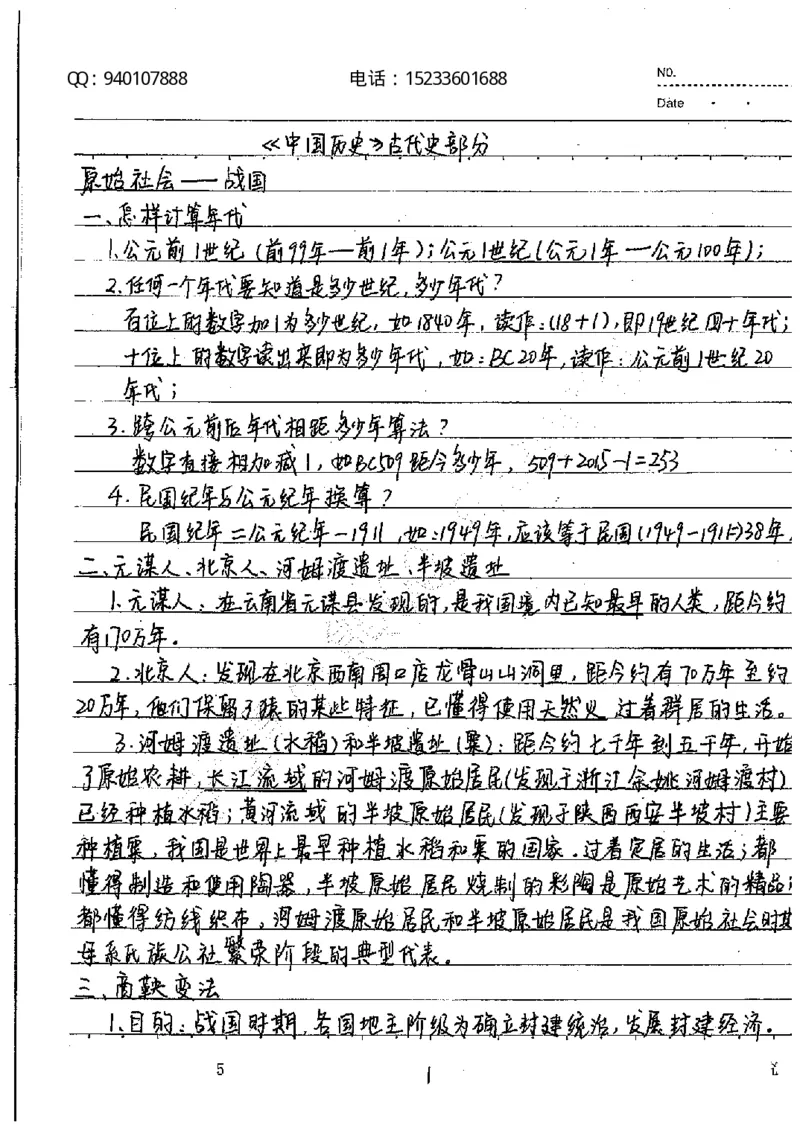 QQ：940107888 电话：15233601688 NO.
Date
《中国历史》古代史部分
原始社会——战国
一、怎样计算年代
1.公元前1世纪（前99年—前1年）；公元1世纪（公元1年—公元100年）；
2.任何一个年代要知道是多少世纪，多少年代？
百位上的数字加1为多少世纪，如1840年，读作：(18+1)，即19世纪四十年代；
十位上的数字读出来即为多少年代，如：BC20年，读作：公元前1世纪20
年代；
3.跨公元前后年代相距多少年算法？
数字直接相加减1，如BC509距今多少年，509+2015-1=253
4.民国纪年与公元纪年换算？
民国纪年=公元纪年-1911，如：1949年，应该等于民国(1949-1911=)38年，
二、元谋人、北京人、河姆渡遗址、半坡遗址
1.元谋人：在云南省元谋县发现的，是我国境内已知最早的人类，距今约
有170万年。
2.北京人：发现在北京西南周口店龙骨山山洞里，距今约有70万年至约
20万年，他们保留了猿的某些特征，已懂得使用天然火，过着群居的生活。
3.河姆渡遗址（水稻）和半坡遗址（粟）：距今约七千年到五千年，开始
了原始农耕，长江流域的河姆渡原始居民（发现于浙江余姚河姆渡村）
已经种植水稻；黄河流域的半坡原始居民（发现于陕西西安半坡村）主要
种植粟，我国是世界上最早种植水稻和粟的国家。过着定居的生活；都
懂得制造和使用陶器，半坡原始居民烧制的彩陶是原始艺术的精品，
都懂得纺线织布，河姆渡原始居民和半坡原始居民是我国原始社会时期
母系氏族公社繁荣阶段的典型代表。
三、商鞅变法
1.目的：战国时期，各国地主阶级为确立封建统治，发展封建经济。
5 1